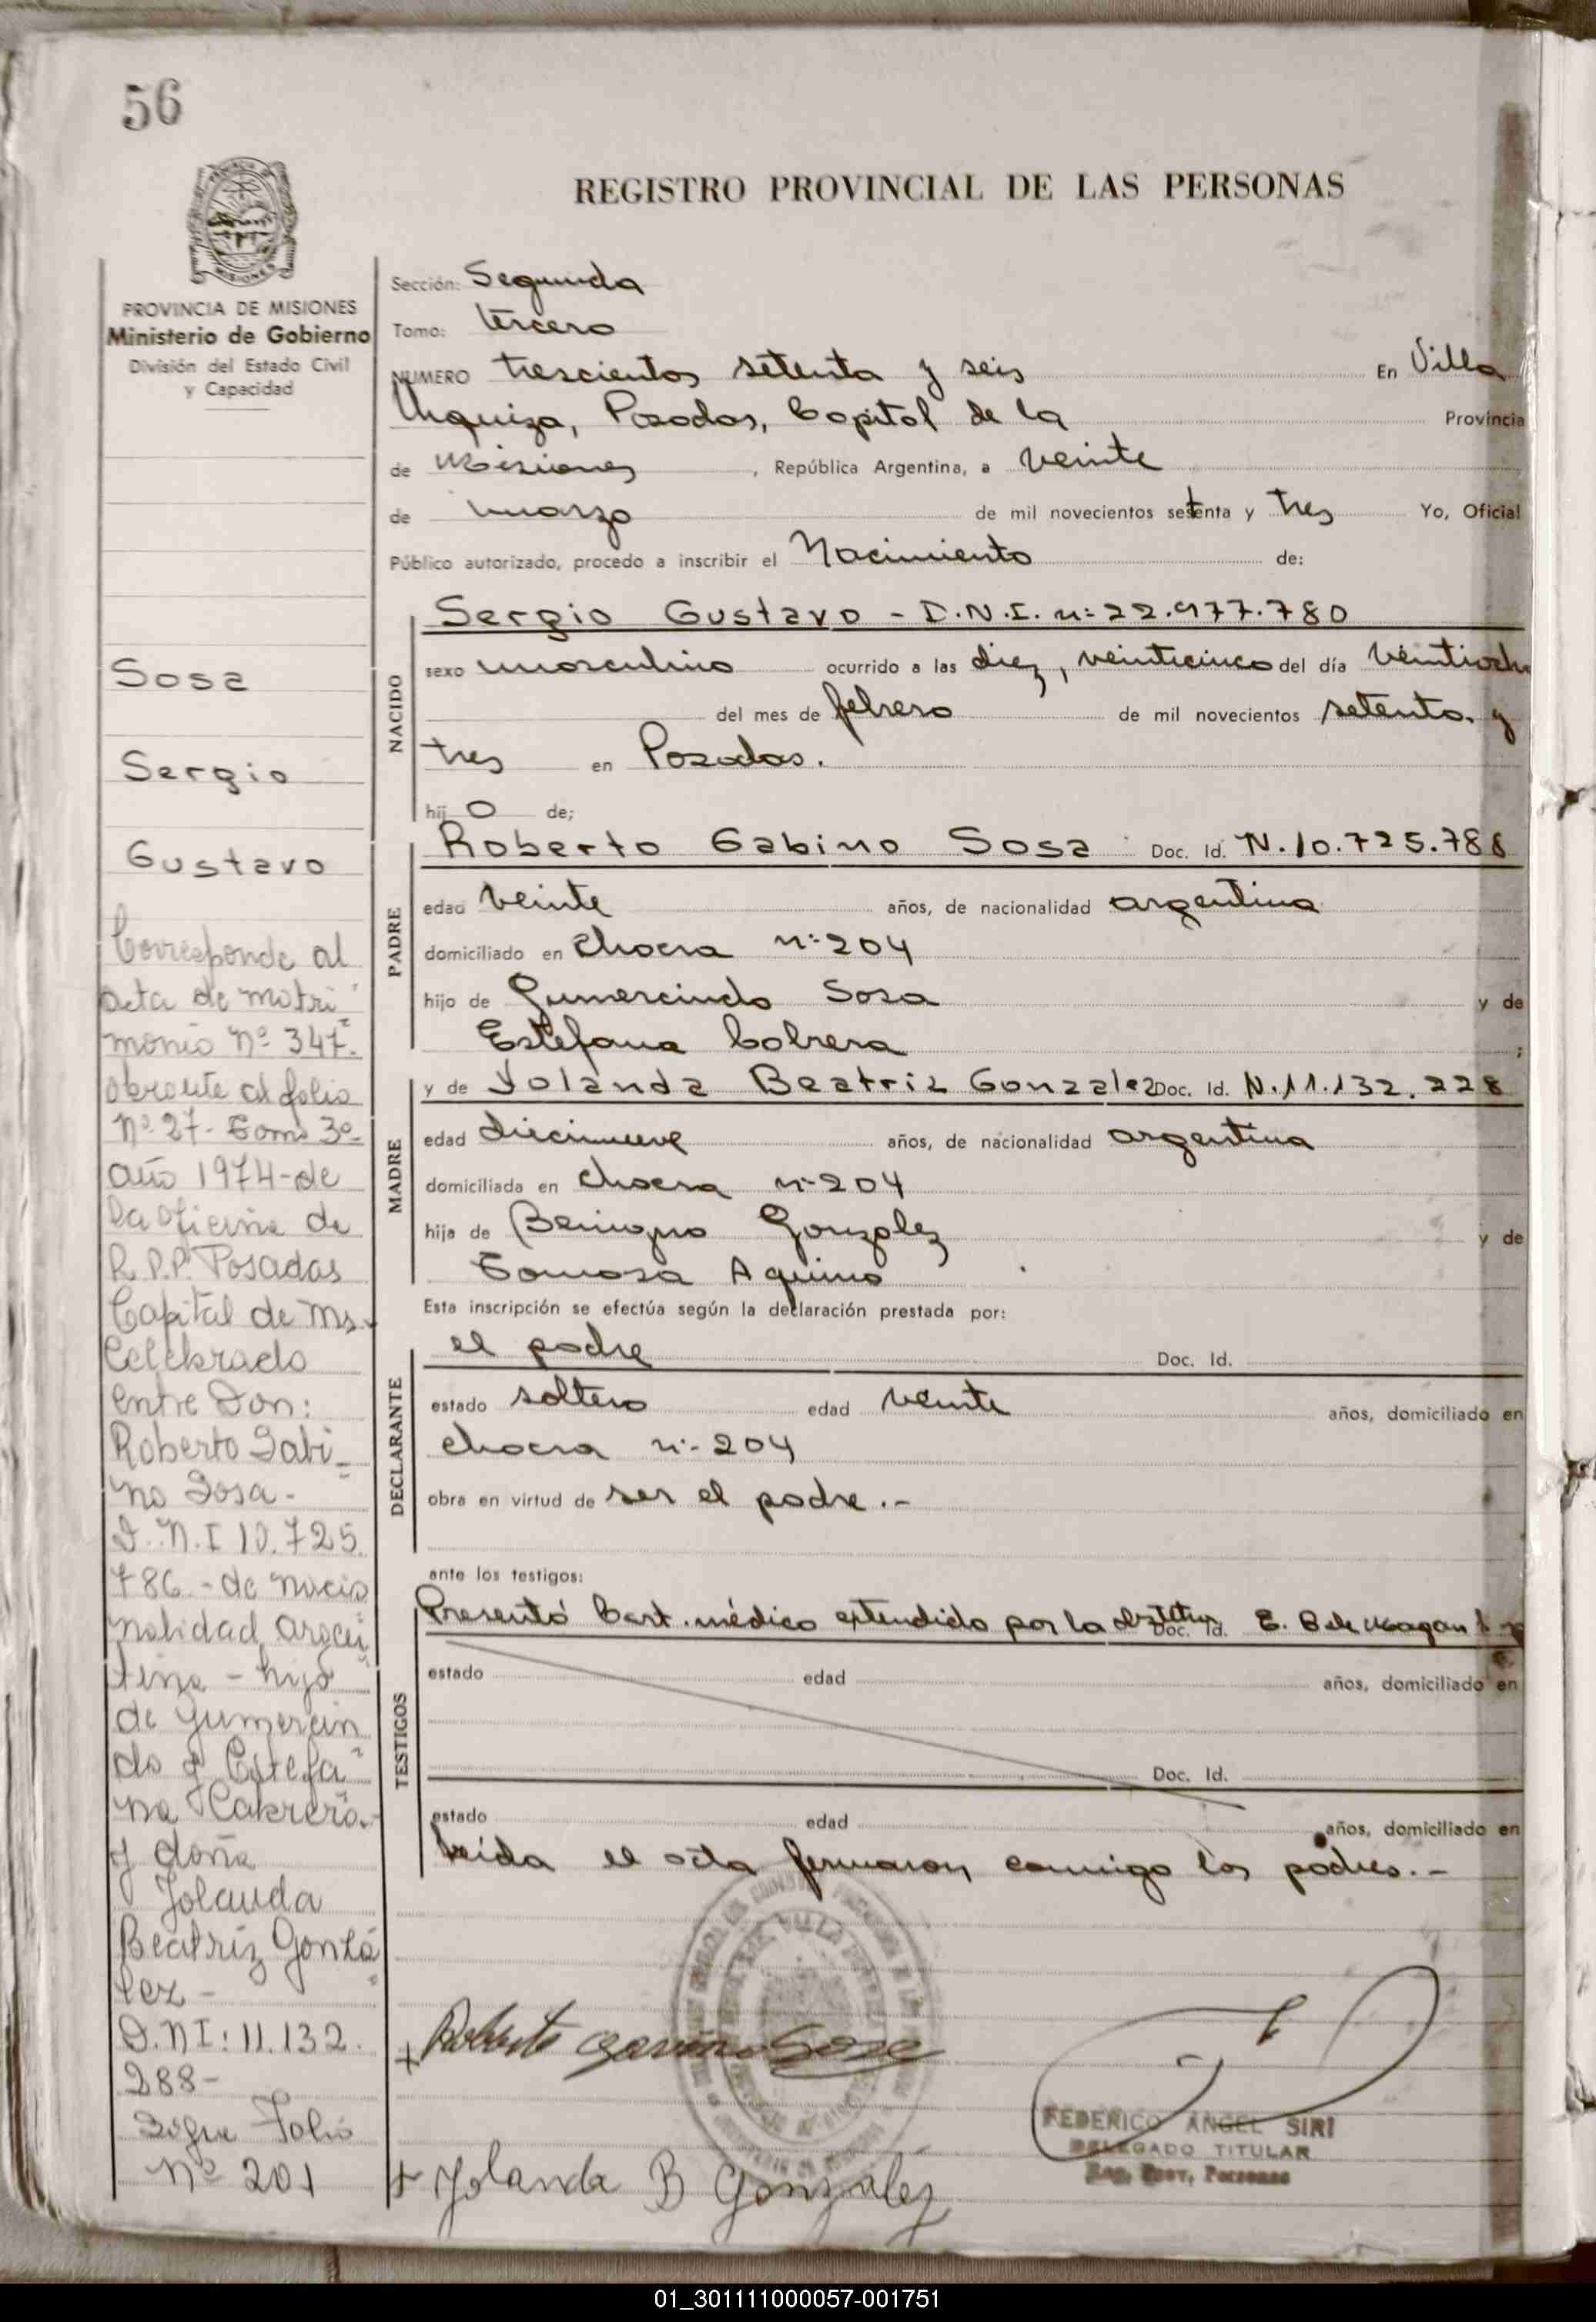 56
REGISTRO PROVINCIAL DE LAS PERSONAS
PROVINCIA DE MISIONES
Ministerio de Gobierno
División del Estado Civil
y Capacidad
Sosa
Sergio
Gustavo
Corresponde al
acta de matri
monio Nº 347-
obrante al folio
Nº 27- Tomo 3º-
año 1974-de
la oficina de
R.P.P. Posadas
Capital de Ms.
Celebrado
entre Don:
Roberto Gabi-
no Sosa-
D.N.I 10.725.
786.- de nacio
nalidad argen
tina - hijo
de Gumercin
do y Estefa
na Cabrera.-
y doña
Yolanda
Beatriz Gonzá
lez-
D.N.I: 11.132.
288-
Sigue Folio
Nº 201
Sección: Segunda
Tomo: tercero
NUMERO trescientos setenta y seis En Villa
Urquiza, Posadas, Capital de la Provincia
de Misiones, República Argentina, a veinte
de marzo de mil novecientos setenta y tres Yo, Oficial
Público autorizado, procedo a inscribir el Nacimiento de:
NACIDO
Sergio Gustavo - D.N.I. nº 22.977.780
sexo masculino ocurrido a las diez, veinticinco del día veintiocho
del mes de febrero de mil novecientos setenta y
tres en Posadas.
hijo de;
PADRE
Roberto Gabino Sosa Doc. Id. N.10.725.788
edad veinte años, de nacionalidad argentina
domiciliado en chacra nº 204
hijo de Gumercindo Sosa y de
Estefana Cabrera ;
MADRE
y de Yolanda Beatriz Gonzalez Doc. Id. N.11.132.228
edad diecinueve años, de nacionalidad argentina
domiciliada en chacra nº 204
hija de Benigno Gonzalez y de
Tomasa Aquino
Esta inscripción se efectúa según la declaración prestada por:
DECLARANTE
el padre Doc. Id.
estado soltero edad veinte años, domiciliado en
chacra nº 204
obra en virtud de ser el padre.-
ante los testigos:
TESTIGOS
Presentó Cert. médico extendido por la Doc. Id. E. B de
estado edad años, domiciliado en
Doc. Id.
estado edad años, domiciliado en
leída el acta firmaron conmigo los padres.-
Roberto Gavino Sosa
FEDERICO ANGEL SIRI
DELEGADO TITULAR
Reg. Prov. Personas
Yolanda B Gonzalez
01_301111000057-001751